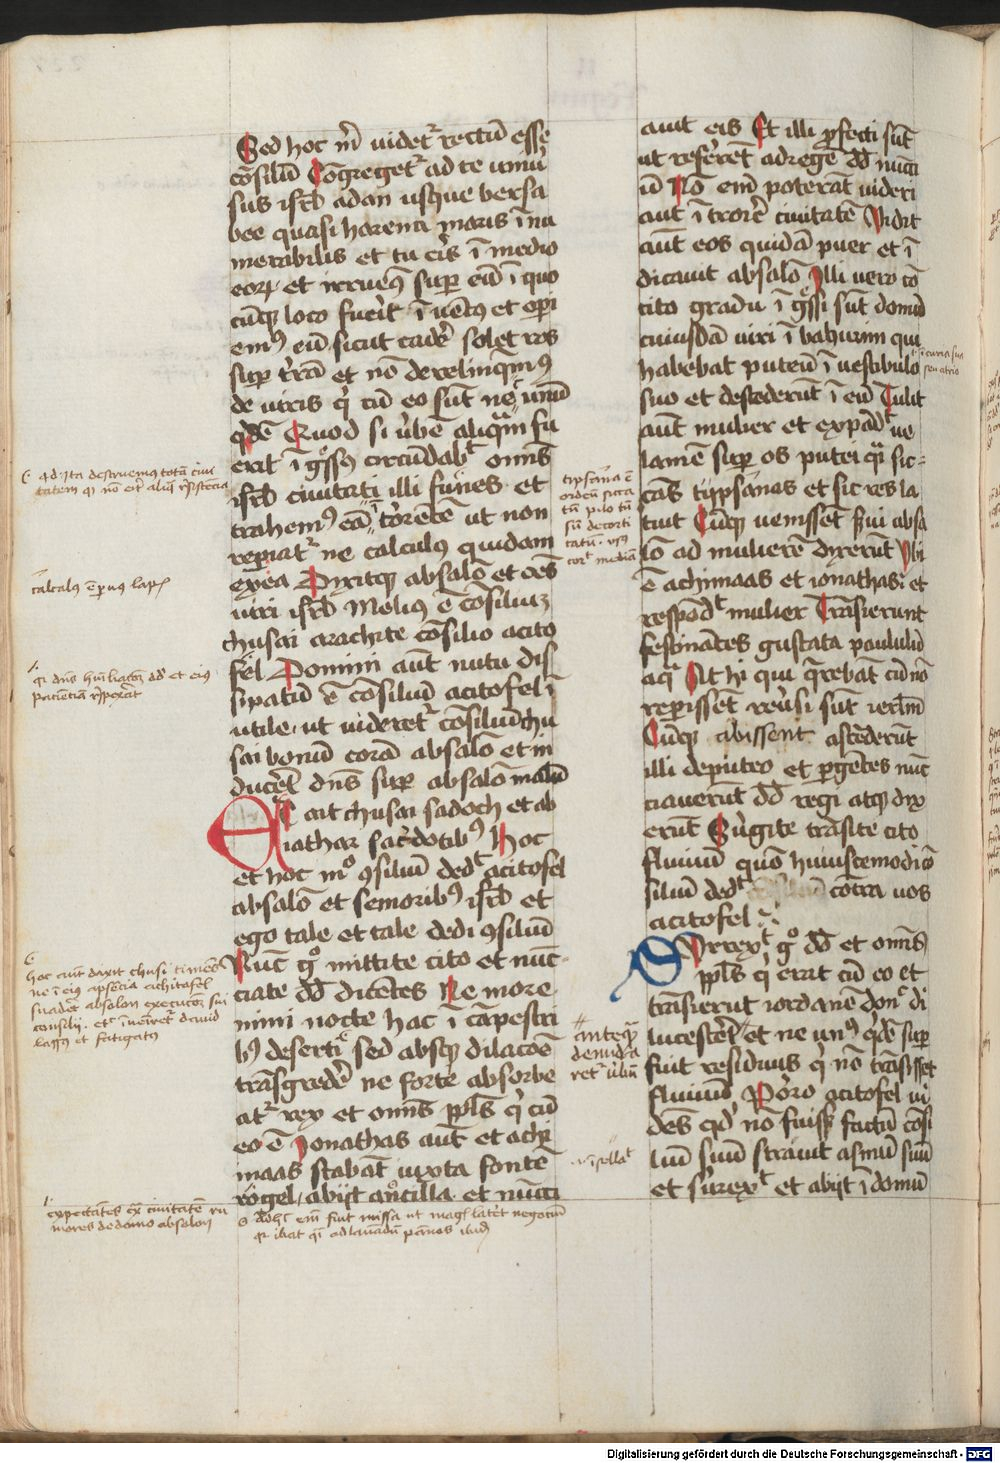 Sed hoc m̄ videt᷑ rectū esse
cōsiliū Cōgreget᷑ ad te univ̾
sus isrl̄ a dan usque bersa
bee quasi harena maris īnu
merabilis et tu er̄is ī medio
eorꝝ et irruem᷒ sup̄ eū ī quo
cūqꝫ loco fuer̄it ī vēt᷒ et op̄i
em᷒ eū sicut cad̾e solet ros
sup̄ t̾rā et nō derelinq̄m᷒
de viris q̇ cū eo sūt ne unū
qdē Quod si urbē aliquā fu
erit ī gr̄ss᷒ circūdabt᷑ omīs
isrl̄ civitati illi funes et
trahem᷒ eā ī torrētē ut non
rep̄iat᷑ ne calculus quidem
ex ea Dixitqꝫ absalō et oēs
viri isrl̄ Meli᷒ ē cōsiliuꝫ
chusai arachite cōsilio acito
fel Domini aūt nutu dis
sipatū ē cōsiliū acitofel ī
utile, ut videret᷑ cōsiliū chu
sai bonū corā absalō et in
ducer̄et dn̄s sup̄ absalō malū
Et ait chusai sadoch et ab
iathar sac̾dotib᷒ Hoc
et hoc mō ꝯsiliū dedt acitofel
absalō et senioribꝰ isrl̄ et
ego tale et tale dedi ꝯsiliū
Nūc gͦ mittite cito et nūc-
ciate dd̄ dicētes Ne more
mini nocte hac ī cāpestri
b᷒ deserti sed absqꝫ dilacōe
trāsgred̾e ne forte absorbe
at᷑ rex et omīs ppls̄ q̇ cū
eo ē Jonathas aūt et achi
maas stabāt iuxta fontē
rogel, abiit ancilla et nūcci
avit eis Et illi p̄fecti sūt
ut refer̄ēt ad regē dd̄ nūcci
ū Nō em̄ poterāt videri
aut ītroir̄e civitatē Vidit
aūt eos quidā puer et ī
dicavit absalō Illi vero cō
cito gradu ī gr̄ssi sūt domū
cuiusdā viri ī bahurim qui
habebat puteū ī vestibulo
suo et descēderūt ī eū Tulit
aūt mulier et expādt ve
lamē sup̄ os putei q̄si sic-
cās typsanas et sic res la
tuit Cūqꝫ venissēt s̾ui absa
lō ad mulierē dixerūt Ubi
ē achimaas et ionathas et
respōdt mulier Trāsierunt
festinātes gustata paululū
aq̄ At hi qui q̄rebāt cū nō
rep̄issēt rev̾si sūt ierl̄m
Cūqꝫ abissent ascēderūt
illi de puteo et p̄gētes nūc
ciaverūt dd̄ regi atqꝫ dix
erūt Surgite trāsite cito
fluviū quō huiuscemodi cō
siliū dedt cōtra vos
acitofel
Surrext gͦ dd̄ et omīs
ppls̄ q̇ erat cū eo et
trāsierūt iordanē donc di
lucescer̄et et ne un᷒ qdē sup̄
fuit residuus q̇ nō trāsisset
fluviū Porro acitofel vi
dēs qd̾ nō fuissꝫ factū cōsi
liū suū stravit asinū suū
et surrext et abiit ī domū
qd. Ita destruemus totā civi
tatem qr nō erit aliq̇ resistēcia
calculus ē pvus lapis
qr dn̄s humiliacōꝫ dd̄ et eius
pacienciā respexerat
hoc aūt dixit chusi timēs
ne ī eius absēcia achitofel
suadet absalon execucōꝫ sui
consilij. et īveniret᷑ david
lassus et fatigatus
expectātes ex civitatē ru
mores de domo absalon
ad hͦ em̄ fuit missa ut magis later̄et negotiū
qr ibat q̄si ad lavādū pānos ibidē
typsana ē
ordeū sicca
tū pilo tū
sū decorti
catū.
antequā
denuda
ret᷑ v̾bū
ī curia sua
seu atrio
Digitalisierung gefördert durch die Deutsche Forschungsgemeinschaft - DFG